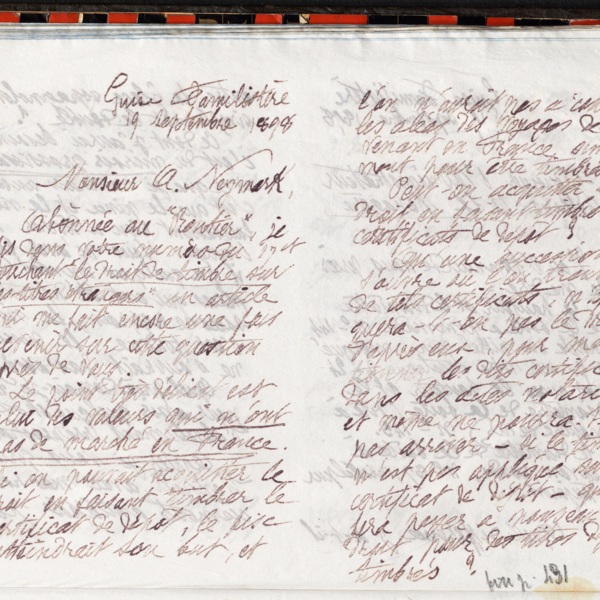 Guise Familistère
19 septembre 1898
Monsieur A. Neymark,
Abonnée au "Rentier", je
lis dans votre numéro du 17 et
touchant "le droit de timbre sur
titres étrangers" un article
me fait encore une fois
revenir sur cette question
près de vous.
Le point est
celui des valeurs qui n'ont
pas de marché en France.
Si on pouvait acquitter le
droit en faisant timbrer le
certificat de dépôt, le fisc
atteindrait son but, et
l'on n'aurait pas à
les aléas des voyages de
venant en France
pour être timbrés
Peut-on acquitter
droit en faisant timbrer
certificats de dépôt ?
Qu'une succession
s'ouvre où l'on
de tels certificats,
quera-t-on pas le
d'après eux pour
les dits certificats
dans les actes notariés
et même ne pourra-t-
pas arriver - si le
n'est pas appliqué sur
certificat de dépôt -
fera payer à nouveau
droit pour des titres
timbrés ?
voir p. 131